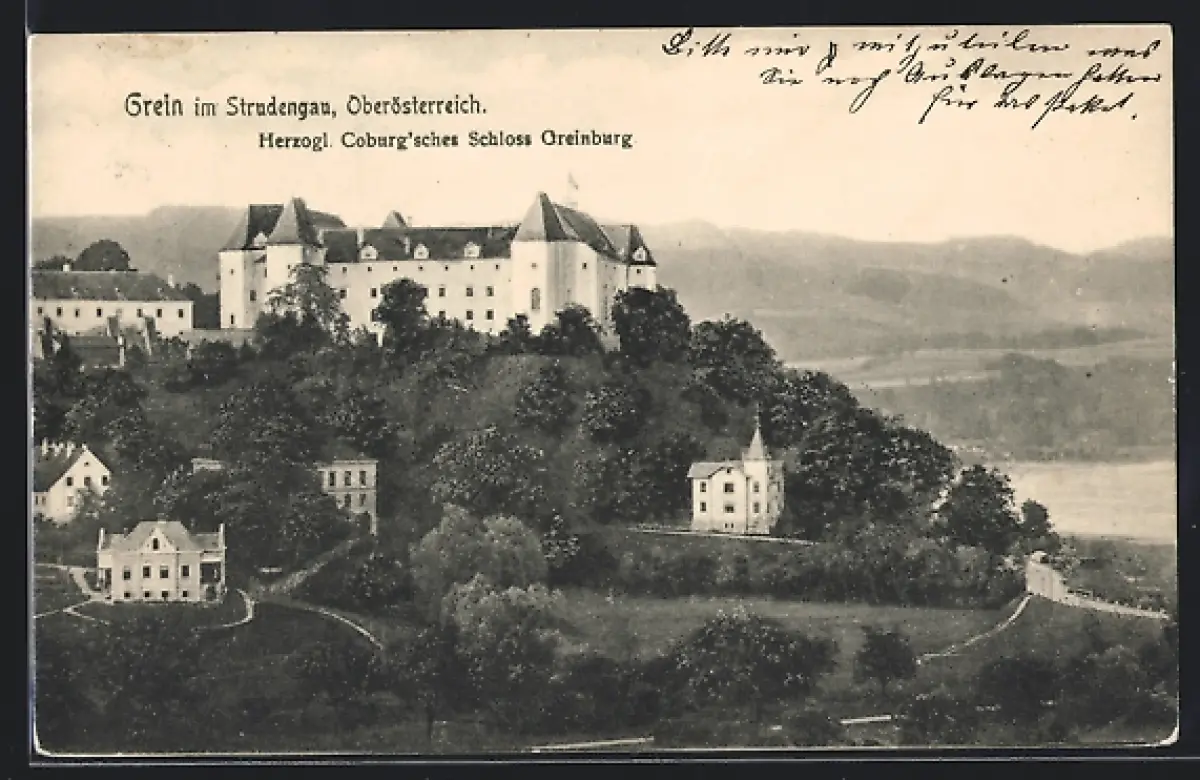 Bitte mir mitzuteilen was
Sie noch Auslagen hatten
für das Paket.
Grein im Strudengau, Oberösterreich.
Herzogl. Coburg'sches Schloss Greinburg